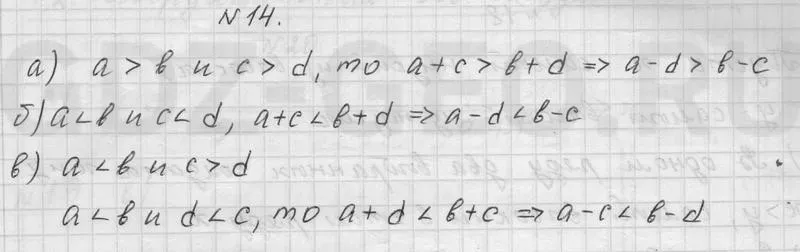 N 14.
а) a > в и c > d, то a + c > в + d => a - d > в - c
б) a < в и c < d, a + c < в + d => a - d < в - c
в) a < в и c > d
a < в и d < c, то a + d < в + c => a - c < в - d